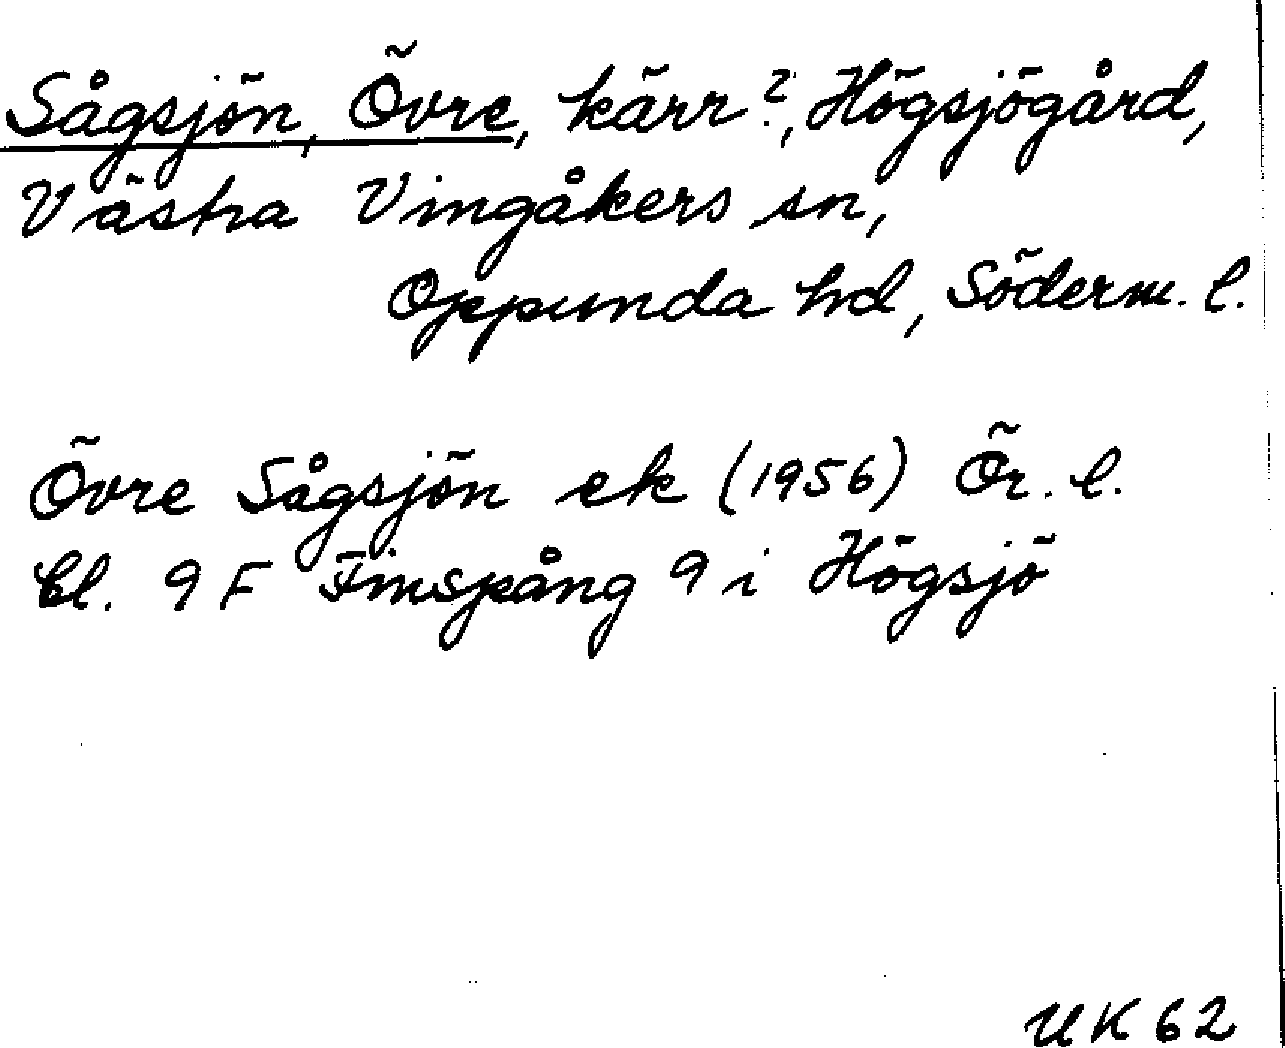 Sågsjön, Övre, kärr?, Högsjögård,
Västra Vingåkers sn,
Oppunda hd, Söderm. l.
Övre Sågsjön ek (1956) Ör. l.
bl. 9 F Finspång 9 i Högsjö
UK 62